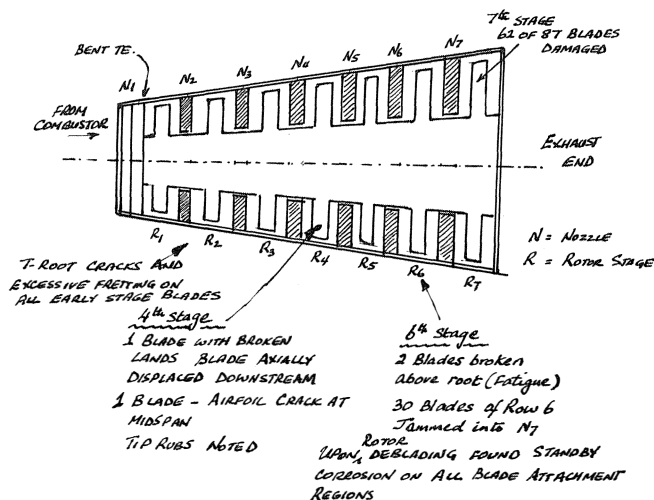 7th STAGE
62 OF 87 BLADES
DAMAGED
BENT TE.
N1
N2
N3
N4
N5
N6
N7
FROM
COMBUSTOR
EXHAUST
END
R1
R2
R3
R4
R5
R6
R7
N = NOZZLE
R = ROTOR STAGE
T-ROOT CRACKS AND
EXCESSIVE FRETTING ON
ALL EARLY STAGE BLADES
4th Stage
1 BLADE WITH BROKEN
LANDS BLADE AXIALLY
DISPLACED DOWNSTREAM
1 BLADE - AIRFOIL CRACK AT
MIDSPAN
TIP RUBS NOTED
6th Stage
2 Blades broken
above root (Fatigue)
30 Blades of Row 6
Jammed into N7
UPON ROTOR DEBLADING FOUND STANDBY
CORROSION ON ALL BLADE ATTACHMENT
REGIONS